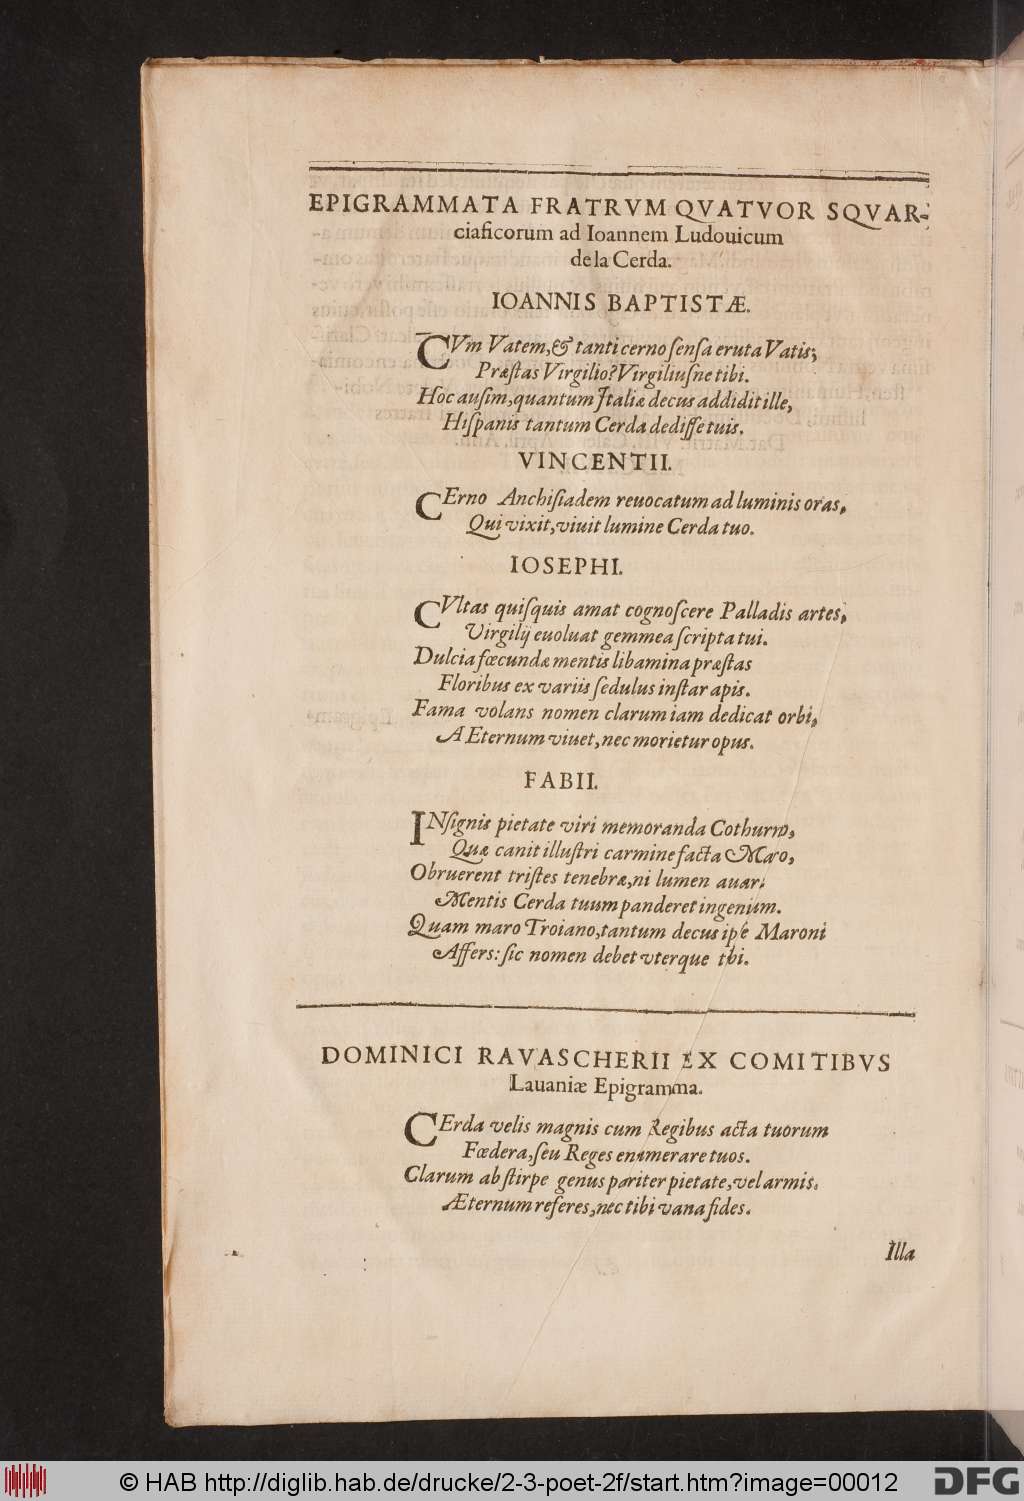 EPIGRAMMATA FRATRVM QVATVOR SQVAR-
ciaficorum ad Ioannem Ludouicum
de la Cerda.
IOANNIS BAPTISTÆ.
CVm Vatem, & tanti cerno ſenſa eruta Vatis;
Præſtas Virgilio? Virgiliuſne tibi.
Hoc auſim, quantum Italiæ decus addidit ille,
Hiſpanis tantum Cerda dediſſe tuis.
VINCENTII.
CErno Anchiſiadem reuocatum ad luminis oras,
Qui vixit, viuit lumine Cerda tuo.
IOSEPHI.
CVltas quiſquis amat cognoſcere Palladis artes,
Virgilij euoluat gemmea ſcripta tui.
Dulcia fœcundæ mentis libamina præſtas
Floribus ex variis ſedulus inſtar apis.
Fama volans nomen clarum iam dedicat orbi,
AEternum viuet, nec morietur opus.
FABII.
INſignis pietate viri memoranda Cothurno,
Quæ canit illuſtri carmine facta Maro,
Obruerent triſtes tenebræ, ni lumen auari
Mentis Cerda tuum panderet ingenium.
Quam maro Troiano, tantum decus ipſe Maroni
Affers: ſic nomen debet vterque tibi.
DOMINICI RAVASCHERII EX COMITIBVS
Lauaniæ Epigramma.
CErda velis magnis cum Regibus acta tuorum
Fœdera, ſeu Reges enumerare tuos.
Clarum ab ſtirpe genus pariter pietate, vel armis.
Æternum referes, nec tibi vana fides.
Illa
© HAB http://diglib.hab.de/drucke/2-3-poet-2f/start.htm?image=00012
DFG